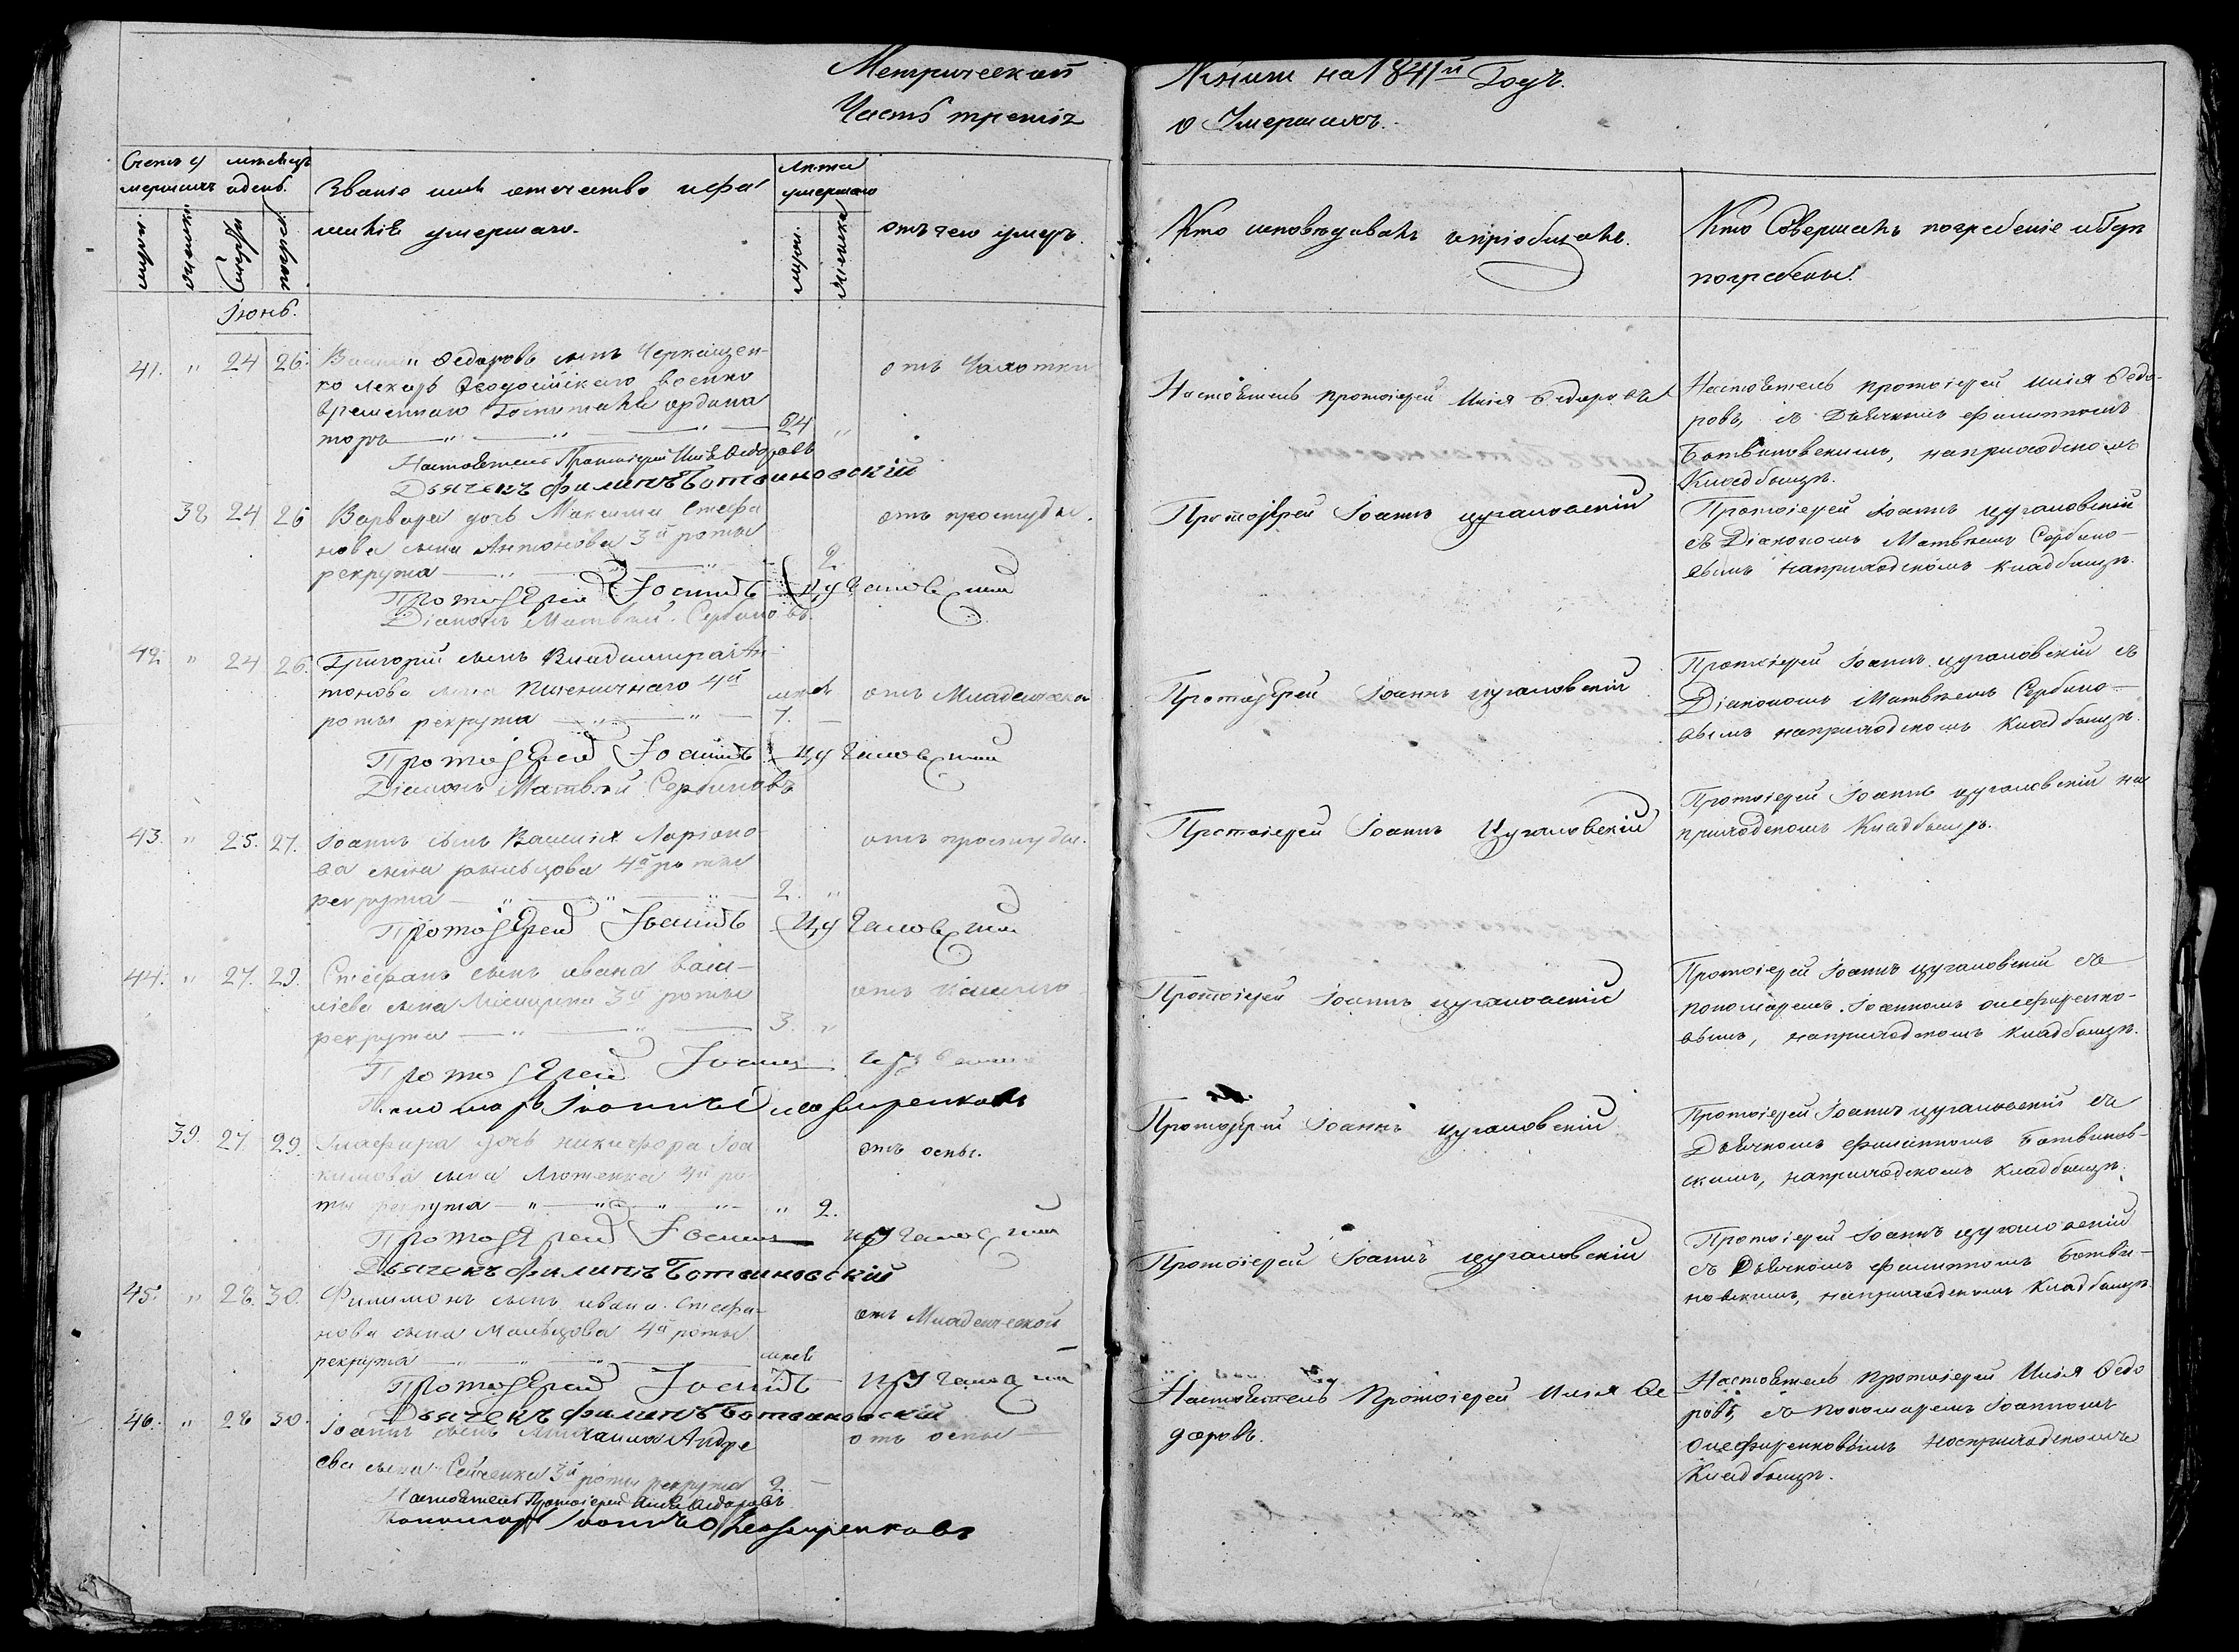 Метрической Книги на 1841й Годъ.
Часть третія о Умершихъ.
Счетъ у
мершихъ
мужеска
женска
месяцъ
и день.
Звание имя отечество и фа
милія умершаго.
лета
умершаго
мужес.
женска
отъ чего умеръ.
Кто исповедовалъ и пріобщалъ.
Кто Совершалъ погребеніе и Где
погребены.
Іюнь.
41. " 24 26.
Василій Федоровъ сынъ Черкащен-
ко лекарь Феодосійскаго военно
временнаго Госпиталя ордина
торъ
24 "
отъ Чахотки
Настоятель Протоіерей Илія Федоровъ
Дьячекъ Филипъ Ботвиновскій
Настоятель протоіерей Илія Федоровъ
Настоятель протоіерей Илія Федо-
ровъ, съ Дьячкомъ Филиппомъ
Ботвиновскимъ, на приходскомъ
Кладбище.
38 24 26
Варвара дочь Максима Стефа
нова сына Антонова 3й роты
рекрута
2.
отъ простуды.
ПротоІерей Іоаннъ Цугановскій
Діаконъ Матвей Сербиновъ.
Протоіерей Іоаннъ Цугановскій
Протоіерей Іоаннъ Цугановскій
съ Діакономъ Матвеемъ Сербино-
вымъ на приходскомъ кладбище.
42. " 24 26.
Григорій сынъ Владимира Ан-
тонова сына Пшеничнаго 4й
роты рекрута
мцев
7.
отъ Младенческа
ПротоІерей Іоаннъ Цугановскій
Діаконъ Матвей Сербиновъ
Протоіерей Іоаннъ Цугановскій
Протоіерей Іоаннъ Цугановскій съ
Діакономъ Матвеемъ Сербино-
вымъ на приходскомъ Кладбище.
43. " 25. 27.
Іоаннъ сынъ Василія Ларіоно-
ва сына рыльцова 4й роты
рекрута
2. "
отъ простуды.
ПротоІерей Іоаннъ Цугановскій
Протоіерей Іоаннъ Цугановскій
Протоіерей Іоаннъ Цугановскій на
приходскомъ Кладбище.
44. " 27. 29.
Стефанъ сынъ ивана Васи-
ліева сына 3й роты
рекрута
3. "
отъ кашлю
ПротоІерей Іоаннъ Цугановскій
Пономарь Іоаннъ Олефиренковъ
Протоіерей Іоаннъ Цугановскій
Протоіерей Іоаннъ Цугановскій съ
пономаремъ Іоанномъ Олефиренко-
вымъ, на приходскомъ Кладбище.
39. 27. 29.
Глафира дочь никифора Іоа
кимова сына Лютенка 3й ро
ты рекрута
" 2.
отъ оспы.
ПротоІерей Іоаннъ Цугановскій
Дьячекъ Филипъ Ботвиновскій
Протоіерей Іоаннъ Цугановскій
Протоіерей Іоаннъ Цугановскій съ
Дьячкомъ Филиппомъ Ботвинов-
скимъ, на приходскомъ Кладбище.
45. " 28. 30.
Филимонъ сынъ ивана Стефа-
нова сына Мальцова 4й роты
рекрута
мцев
7
отъ Младенческой
ПротоІерей Іоаннъ Цугановскій
Дьячекъ Филипъ Ботвиновскій
Протоіерей Іоаннъ Цугановскій
Протоіерей Іоаннъ Цугановскій
съ Дьячкомъ Филиппомъ Ботви-
новскимъ, на приходскомъ Кладбище.
46. " 28 30.
Іоаннъ сынъ Михаила Андре
ева сына Сейченка 3й роты рекрута
2.
отъ оспы
Настоятель Протоіерей Илія Федоровъ
Пономарь Іоаннъ Олефиренковъ
Настоятель Протоіерей Илія Фе-
доровъ.
Настоятель Протоіерей Илія Федо
ровъ, съ пономаремъ Іоанномъ
Олефиренковымъ на приходскомъ
Кладбище.